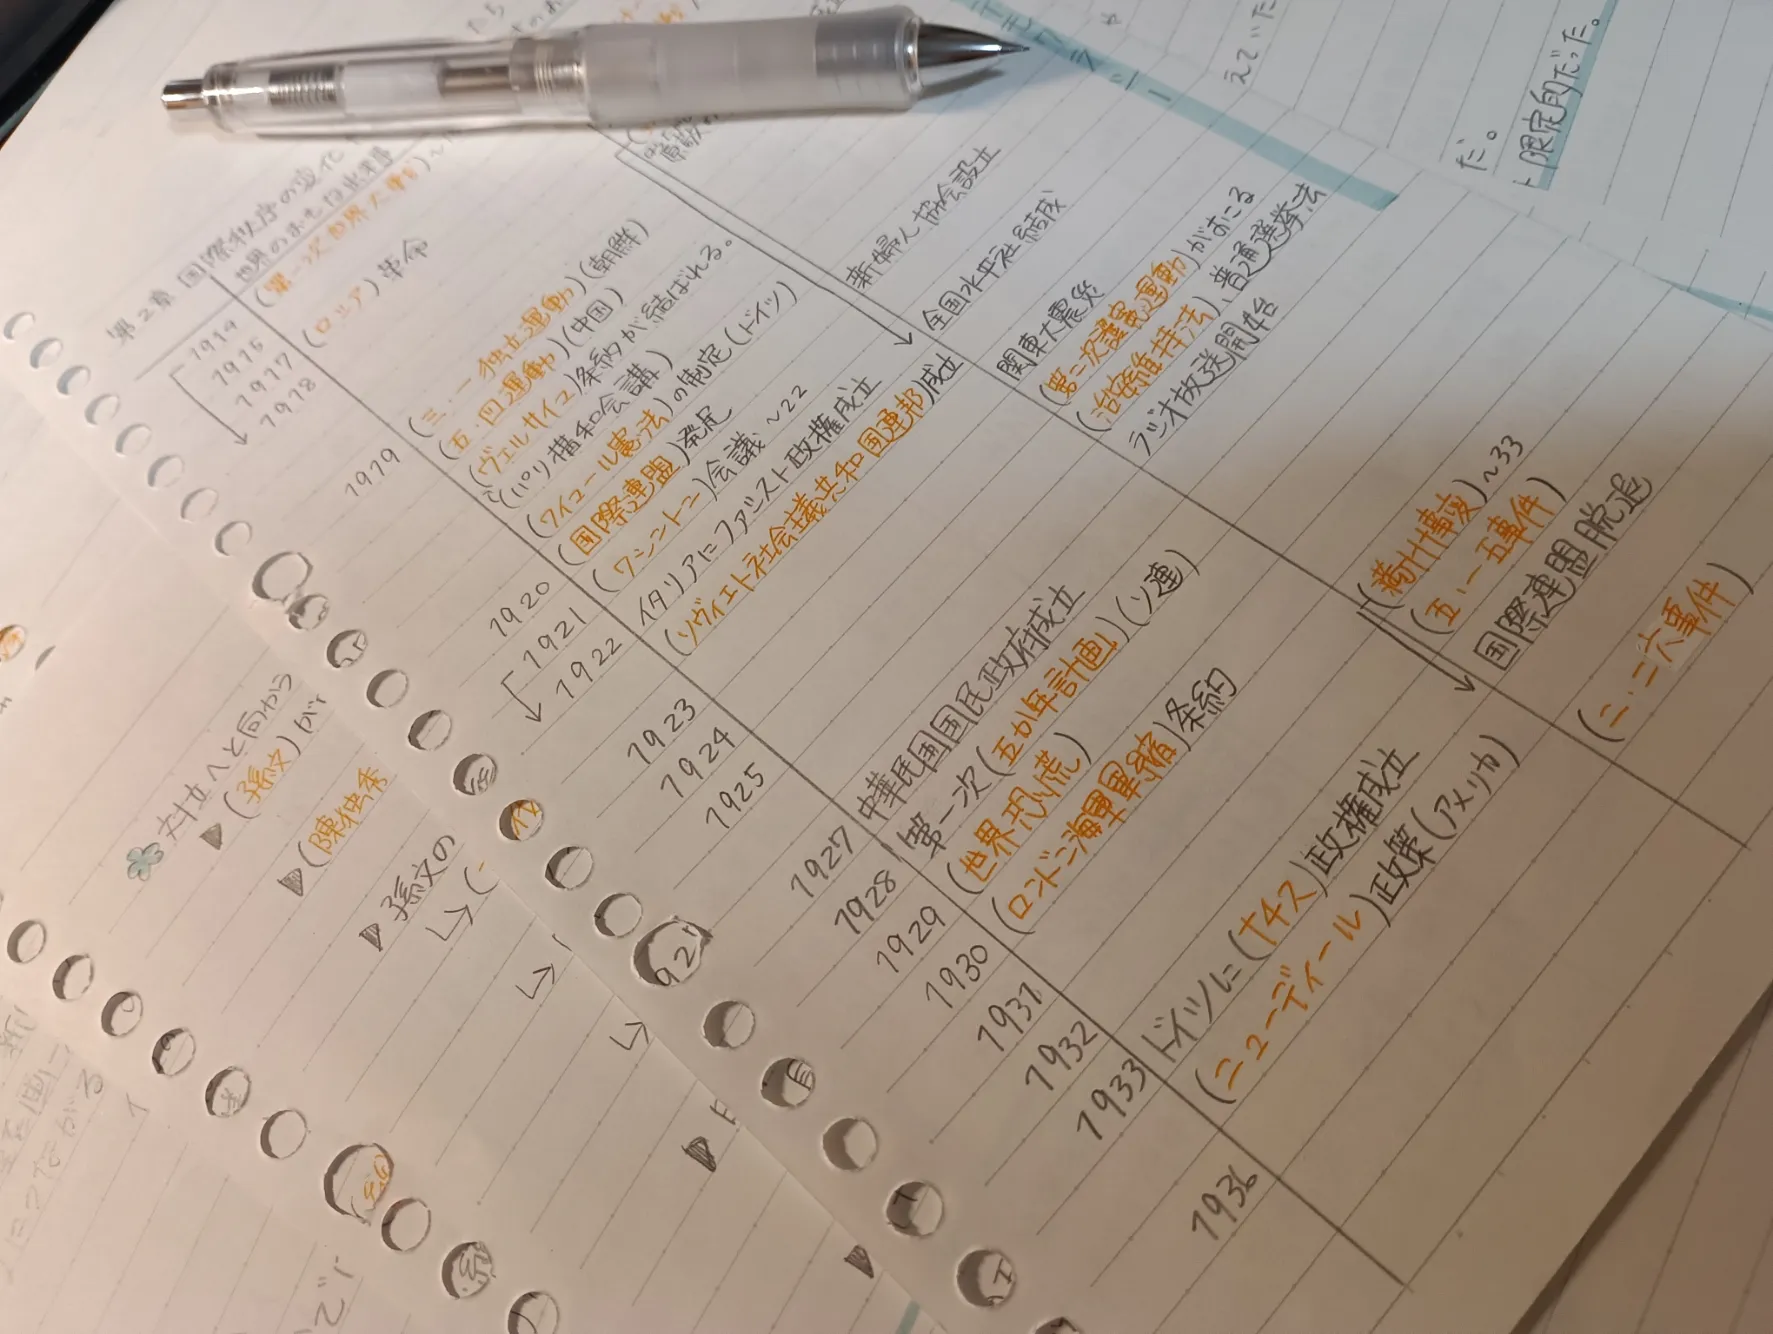 第2章 国際秩序の変化
世界のおもな出来事
1914 (第一次世界大戦)~
1915
1917 (ロシア)革命
1918
1919 (三・一独立運動)(朝鮮)
(五・四運動)(中国)
(ヴェルサイユ)条約が結ばれる。
(パリ講和会講)
(ワイマール憲法)の制定(ドイツ)
1920 (国際連盟)発足
1921 (ワシントン)会議~22
1922 イタリアにファシスト政権成立
(ソヴィエト社会主義共和国連邦)成立
1923
1924
1925
1927 中華民国国民政府成立
1928 第一次(五か年計画)(ソ連)
1929 (世界恐慌)
1930 (ロンドン海軍軍縮)条約
1931
1932
1933 ドイツに(ナチス)政権成立
(ニューディール)政策(アメリカ)
1936
新婦人協会設立
全国水平社結成
関東大震災
(第二次護憲運動)がおこる
(治安維持法)、普通選挙法
ラジオ放送開始
(満州事変)~33
(五・一五事件)
国際連盟脱退
(二・二六事件)
対立へと向から
▶(孫文)が
▶(陳独秀
▶孫文の
えていた
だ。
限定的だった。